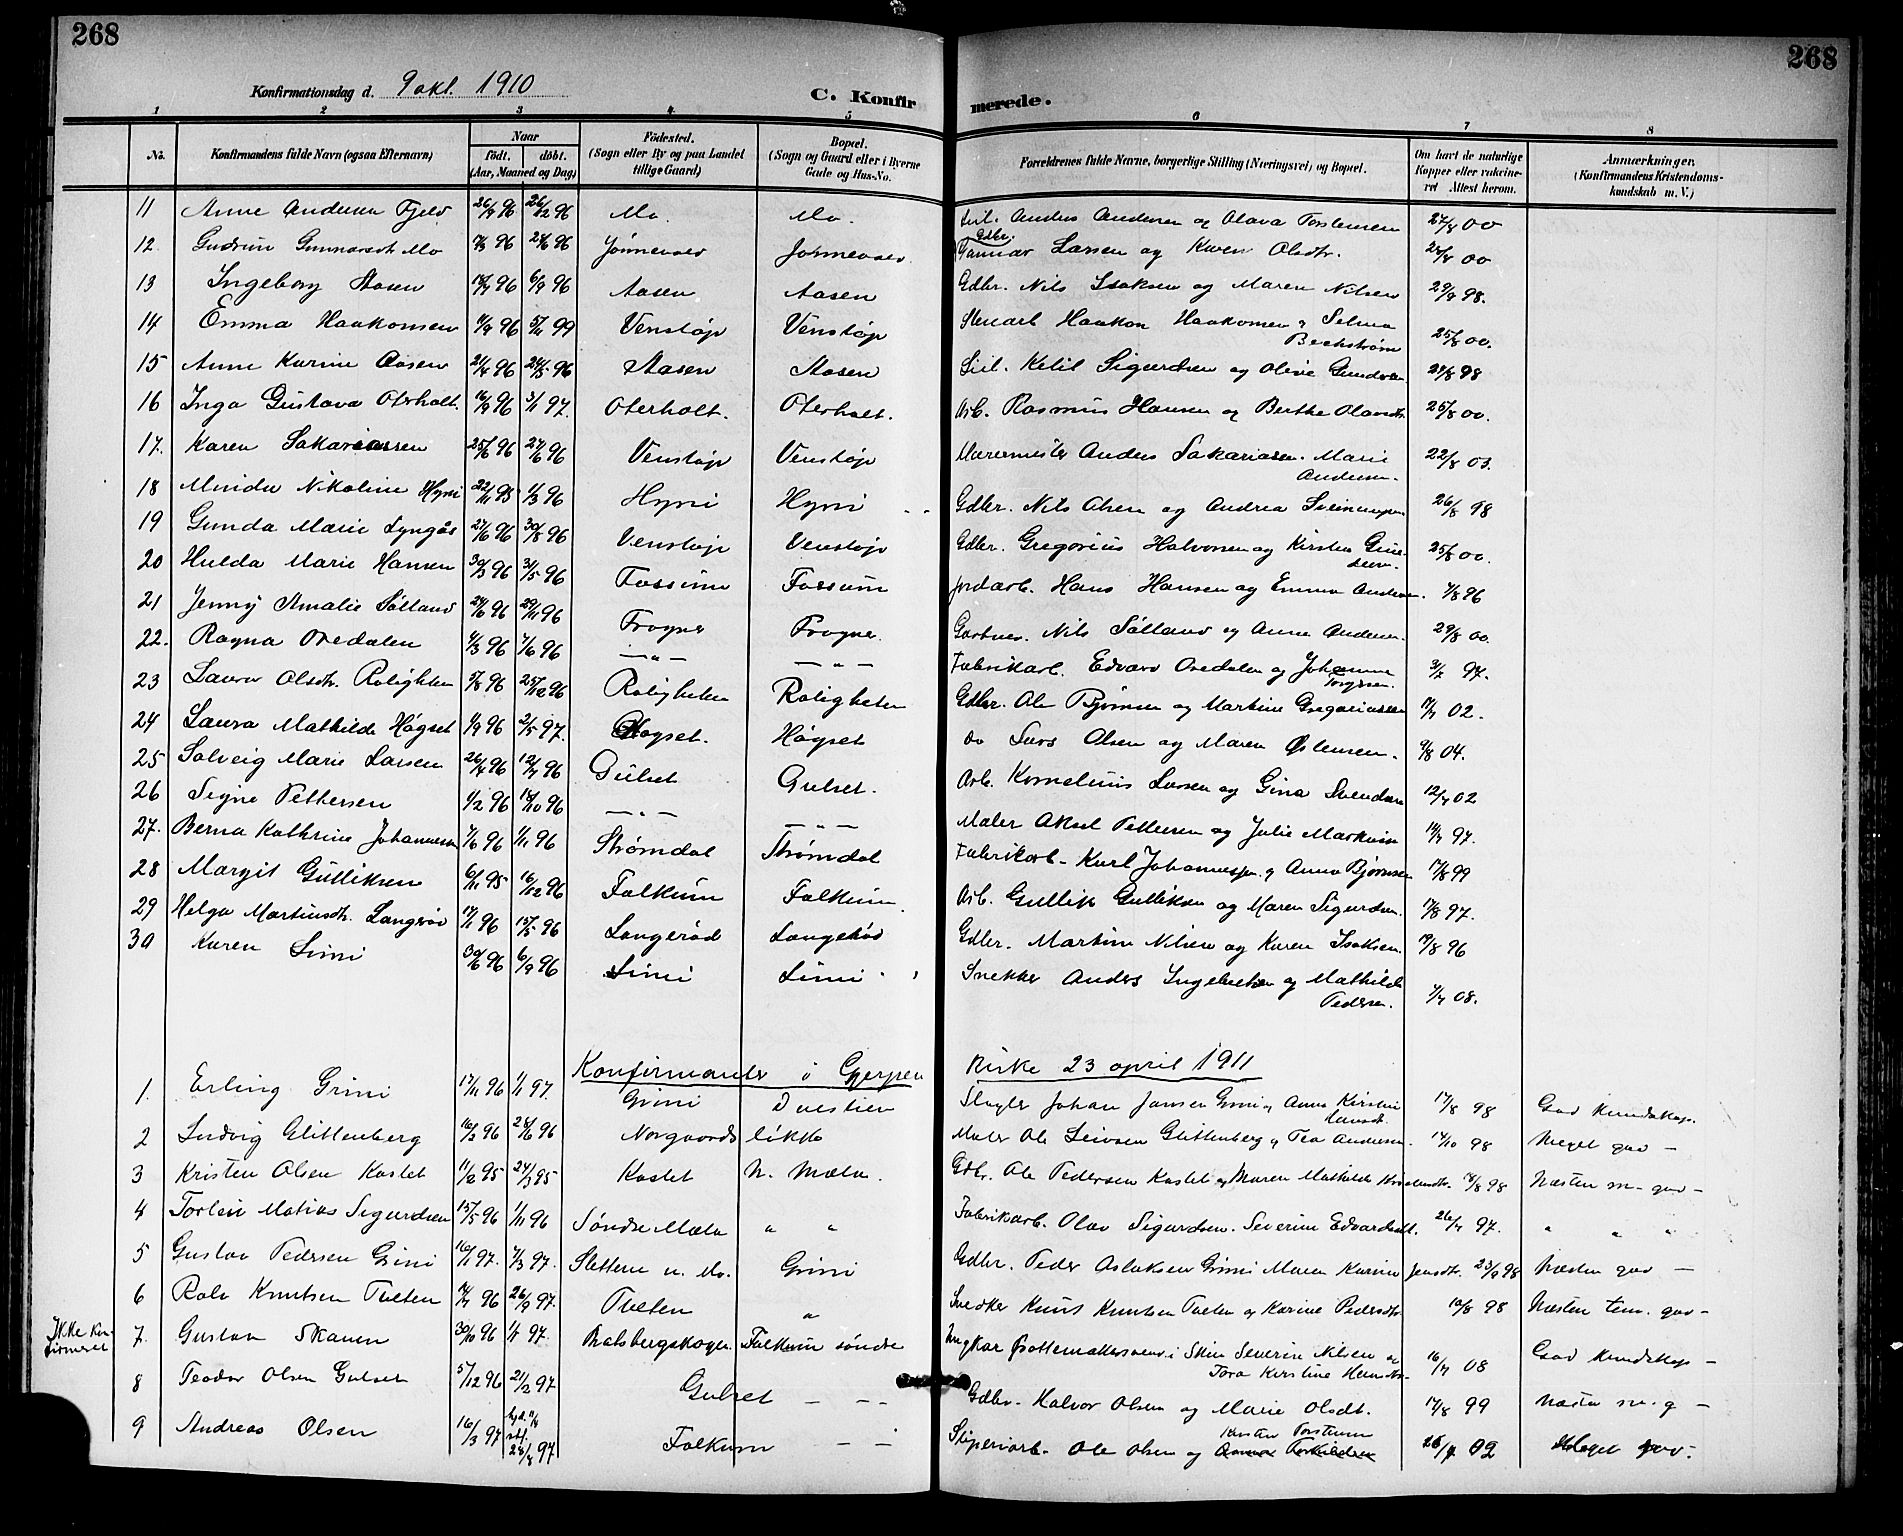 268
268
Konfirmationsdag d. 9 okt. 1910
C. Konfirmerede.
1 2 3 4 5 6 7 8
No. Konfirmandens fulde Navn (ogsaa Efternavn) Naar födt. döbt. (Aar, Maaned og Dag) Födested. (Sogn eller By og paa Landet tillige Gaard) Bopæl. (Sogn og Gaard eller i Byerne Gade og Hus-No. Forældrenes fulde Navne, borgerlige Stilling (Næringsvei) og Bopæl. Om havt de naturlige Kopper eller vakcineret Attest herom. Anmærkninger. (Konfirmandens Kristendomskundskab m. V.)
11 Anne Andersen Fjeld 26/9 96 26/12 96 Mo. Mo. Anders Andersen og Olava Torstensen 27/8 00
12. Gudrun Gunnarsdt. Mo 96 96 Gdbr. Gunnar Larsen og Karen Olsdtr. 00
13 Ingeborg Aasen 96 6/9 96 Aasen Aasen Gdbr. Nils Isaksen og Maren Nilsen 29/9 98.
14 Emma Haakonsen 11/9 96 5/11 99 Venstøp Venstøp Haakon Haakonsen og Selma Beckstrøm 25/8 00.
15 Anne Karine Aasen 21/4 96 24/5 96 Aasen Aasen Ketil Sigurdsen og Olive 98
16 Inga Gustava Oterholt. 16/9 96 3/1 97. Oterholt. Oterholt. Arb. Rasmus Hansen og Berthe Olavsdt. 25/8 00.
17. Karen Sakariassen 25/5 96 27/6 96 Venstøp Venstøp Murermester Anders Sakariasen. Marie Andersen. 22/8 03.
18 Minda Nikoline Hyni 22/11 95 1/3 96 Hyni Hyni Gdbr. Nils Olsen og Andrea 26/8 98
19 Gunda Marie Lyngås 27/6 96 30/8 96 Venstøp Venstøp Gdbr. Gregorius Halvorsen og Kirsten 25/8 00.
20 Hulda Marie Hansen 30/3 96 31/5 96 Fossum Fossum Jordarb. Hans Hansen og Emma Andersen. 7/8 96
21 Jenny Amalie Sølland 24/6 96 29/11 96 Frogner Frogner. Gartner. Nils Sølland og Anna Andersen. 29/8 00.
22. Ragna Oredalen 4/3 96 7/6 96 — " — — " — Fabrikarb. Edvard Oredalen og Johanne 3/2 97.
23 Laura Olsdtr. Roligheten 5/8 96 25/12 96 Roligheten Roligheten Gdbr. Ole Bjørnsen og Martine Gregoriusen 02.
24 Laura Mathilde Høgset 1/9 96 2/5 97. Høgset. Høgset do Lars Olsen og Maren Østensen. 9/8 04.
25 Solveig Marie Larsen 26/4 96 12/7 96 Gulset Gulset. Arb. Kornelius Larsen og Gina Svendsen 12/7 02
26 Signe Pettersen 1/2 96 18/10 96 — " — — " — Maler Aksel Pettersen og Julie 97.
27. Berna Kathrine Johannesen 7/6 96 1/11 96 Strømdal Strømdal Fabrikarb. Karl Johannesen og Anna Bjørnsen 17/8 99
28 Margit Gulliksen 6/11 95 16/12 96 Falkum Falkum. Arb. Gullik Gulliksen og Maren Sigurdsen. 97.
29 Helga Martinsdt. Langerød 17/1 96 15/5 96 Langerød Langerød Gdbr. Martin Nilsen og Karen Isaksen. 19/8 96
30 Karen Limi 30/6 96 6/9 96 Limi Limi Snekker Anders og Mathilde Pedersen. 7/7 08.
Konfirmanter i Gjerpen Kirke 23 april 1911
1. Erling Grini 17/11 96 1/1 97. Grini Duestien Johan Jansen Grini og Anna Kirstin 17/8 98 God kundskap.
2 Ludvig Glittenberg 16/2 96 28/6 96 Norgaardsløkke Maler Ole Leivsen Glittenberg og Tea Andersen. 17/10 98 Meget god —
3 Kristen Olsen Kastet 11/2 95 24/3 95 Kastet N. Mæla. Gdbr. Ole Pedersen Kastet og Maren Mathilde 98 Næsten m. god —
4 Torleiv Matias Sigurdsen 15/5 96 1/11 96 Søndre Mæla " " Fabrikarb. Olav Sigurdsen. Severine Edvardsdt. 26/7 97. " " "
5 Gustav Pedersen Grini 16/1 97. 7/3 97. Sletterne u. Mo. Grini Gdbr. Peder Aslaksen Grini Maren Karine Jensdtr. 23/9 98 Næsten god —
6 Ralv Knutsen Tveten 96 26/9 97. Tveten " Snedker Knut Knutsen Tveten og Karine Pedersdtr. 10/8 98 Næsten tem. god —
Ikke konfirmeret 7. Gustav Skauen 30/10 96 1/1 97. Bratsbergskogen Falkum søndre Ungkar Pottemakersvend i Skien Severin Nilsen og Tora Kirstine Hansdtr. 16/7 08 God kundskap —
8 Teodor Olsen Gulset 5/12 96 21/2 97 Gulset — " — Gdbr. Halvor Olsen og Marie Olsdt. 17/8 99 Næsten m. g —
9 Andreas Olsen 16/3 97 28/8 97 Falkum — — Sliperiarb. Ole Olsen og Kirsten Torstensen 02 Meget god.